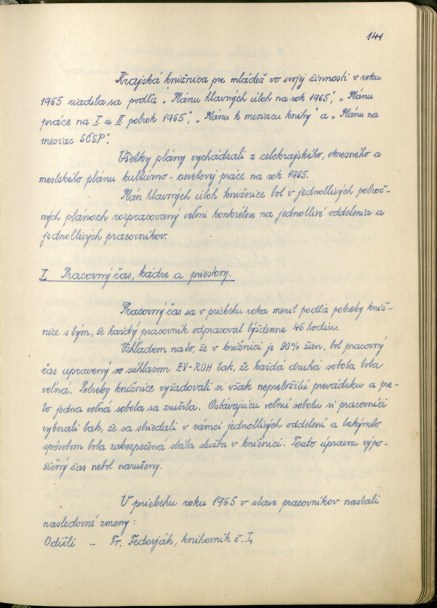 141
Krajská knižnica pre mládež vo svojej činnosti v roku
1965 riadila sa podľa „Plánu hlavných úloh na rok 1965", „Plánu
práce na I a II polrok 1965", „Plánu k mesiacu knihy" a „Plánu na
mesiac SČSP".
Všetky plány vychádzali z celokrajského, okresného a
mestského plánu kultúrno-osvetovej práce na rok 1965.
Plán hlavných úloh knižnice bol v jednotlivých polroč-
ných plánoch rozpracovaný veľmi konkrétne na jednotlivé oddelenia a
jednotlivých pracovníkov.
I. Pracovný čas, kádre a priestory.
Pracovný čas sa v priebehu roka menil podľa potreby kniž-
nice s tým, že každý pracovník odpracoval týždenne 46 hodín.
Vzhľadom na to, že v knižnici je 90% žien, bol pracovný
čas upravený so súhlasom ZV-ROH tak, že každá druhá sobota bola
voľná. Potreby knižnice vyžadovali si však nepretržitú prevádzku a pre-
to jedna voľná sobota sa zrušila. Ostávajúcu voľnú sobotu si pracovníci
vyberali tak, že sa striedali v rámci jednotlivých oddelení a takýmto
spôsobom bola zabezpečená stála služba v knižnici. Touto úpravou výpo-
žičný čas nebol narušený.
V priebehu roku 1965 v stave pracovníkov nastali
nasledovné zmeny:
Odišli - Fr. Fedorják, knihovník č. I,